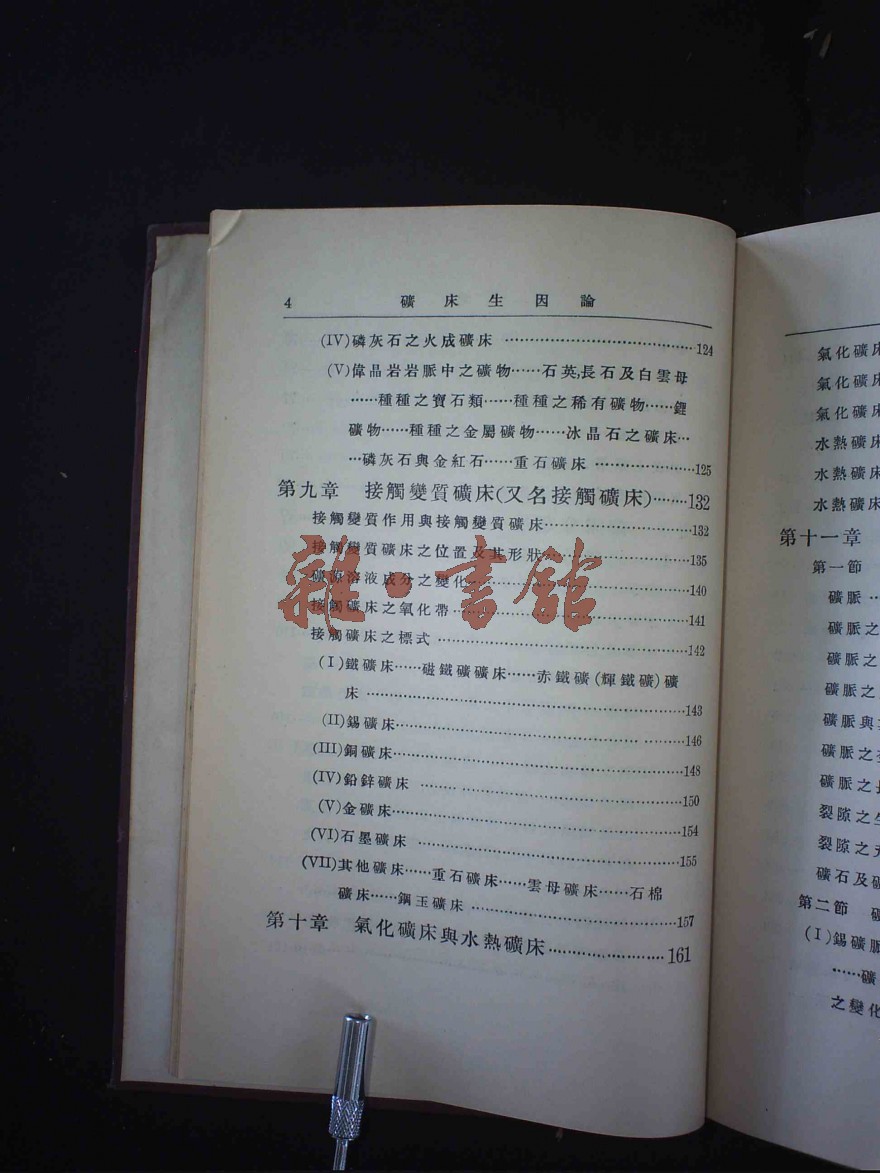 4 礦床生因論
(IV)磷灰石之火成礦床 ……………………………… 124
(V)偉晶岩岩脈中之礦物……石英,長石及白雲母
……種種之寶石類……種種之稀有礦物……鋰
礦物……種種之金屬礦物……冰晶石之礦床…
…磷灰石與金紅石……重石礦床 ………………125
第九章 接觸變質礦床(又名接觸礦床)………132
接觸變質作用與接觸變質礦床………………………132
接觸變質礦床之位置及其形狀………………………135
礦源溶液成分之變化…………………………………140
接觸礦床之氧化帶……………………………………141
接觸礦床之標式 ………………………………………142
(I)鐵礦床……磁鐵礦礦床……赤鐵礦(輝鐵礦)礦
床 ……………………………………………………143
(II)錫礦床………………………………… …………146
(III)銅礦床………………………………………………148
(IV)鉛鋅礦床 …………………………………………150
(V)金礦床………………………………………………154
(VI)石墨礦床 …………………………………………155
(VII)其他礦床……重石礦床……雲母礦床……石棉
礦床……鋼玉礦床 …………………………………157
第十章 氣化礦床與水熱礦床……………………161
雜·書館
氣化礦床
氣化礦床
氣化礦床
水熱礦床
水熱礦床
水熱礦床
第十一章
第一節
礦脈…
礦脈之
礦脈之
礦脈之
礦脈與
礦脈之
礦脈之
裂隙之
裂隙之
礦石及
第二節
(I)錫礦脈
……礦
之變化